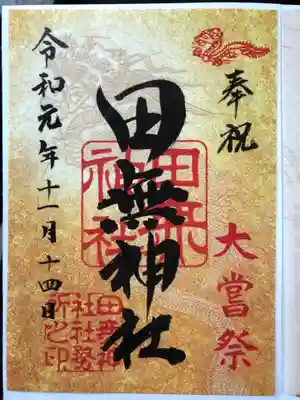 奉祝
大嘗祭
田無神社
田無神社
令和元年十一月十四日
田無神社社務所之印